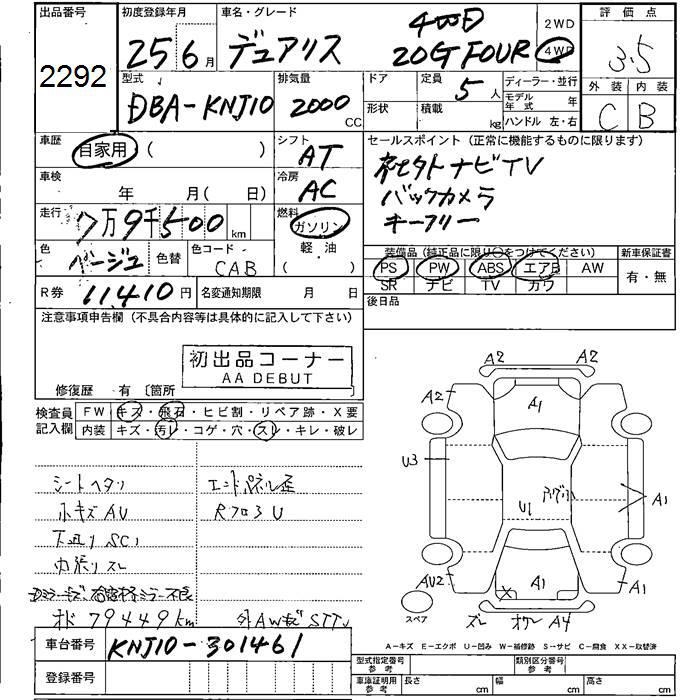 出品番号
2292
初度登録年月
25 6月
車名・グレード
デュアリス
4WD
20G FOUR
2WD
4WD
評価点
3.5
外装 内装
C B
型式
DBA-KNJ10
排気量
2000
CC
ドア
定員
5人
形状
積載
kg
ディーラー・並行
モデル年式 年
ハンドル 左・右
車歴
自家用 ( )
シフト
AT
車検
年 月 ( 日)
冷房
AC
走行
7万9千500km
燃料
ガソリン
軽・油
( )
色
ベージュ
色替
色コード
CAB
R券 11410円
名変通知期限 月 日
セールスポイント (正常に機能するものに限ります)
ナビTV
バックカメラ
キーフリー
装備品(純正品に限り○をつけてください)
PS PW ABS エアB AW
SR ナビ TV カワ
新車保証書
有・無
後日品
注意事項申告欄 (不具合内容等は具体的に記入して下さい)
初出品コーナー
AA DEBUT
修復歴 有 〔箇所
検査員
記入欄
FW キズ・飛石・ヒビ割・リペア跡・X要
内装 キズ・汚レ・コゲ・穴・スレ・キレ・破レ
シートヘタリ
小キズAU
下廻りSC1
内張りスレ
エンドパネル歪
RフロアU
79449km
外AWキズ
車台番号
KNJ10-301461
登録番号
A2 A2
A2
A1
U3
U1
A1
AU2
A1
AU1
スペア
ズレ
A4
A-キズ E-エクボ U-凹み W-補修跡 S-サビ C-腐食 XX-取替済
型式指定番号
参考
類別区分番号
参考
車庫証明用
参考
長さ cm
幅 cm
高さ cm